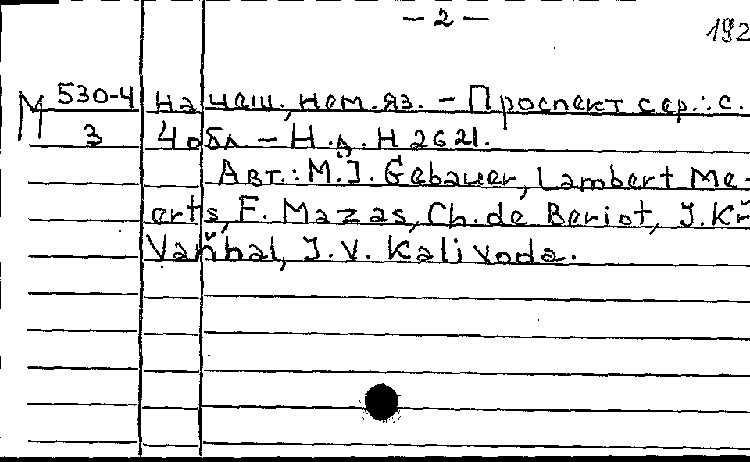 — 2 —
192
М 530-4 на чеш., нем. яз. – Проспект сер.: с.
3 4 обл – H.д. H 2621.
Авт.: M.J. Gebauer, Lambert Me-
erts, F. Mazas, Ch. de Beriot, J. Kř
Vaňhal, J. V. Kalivoda.